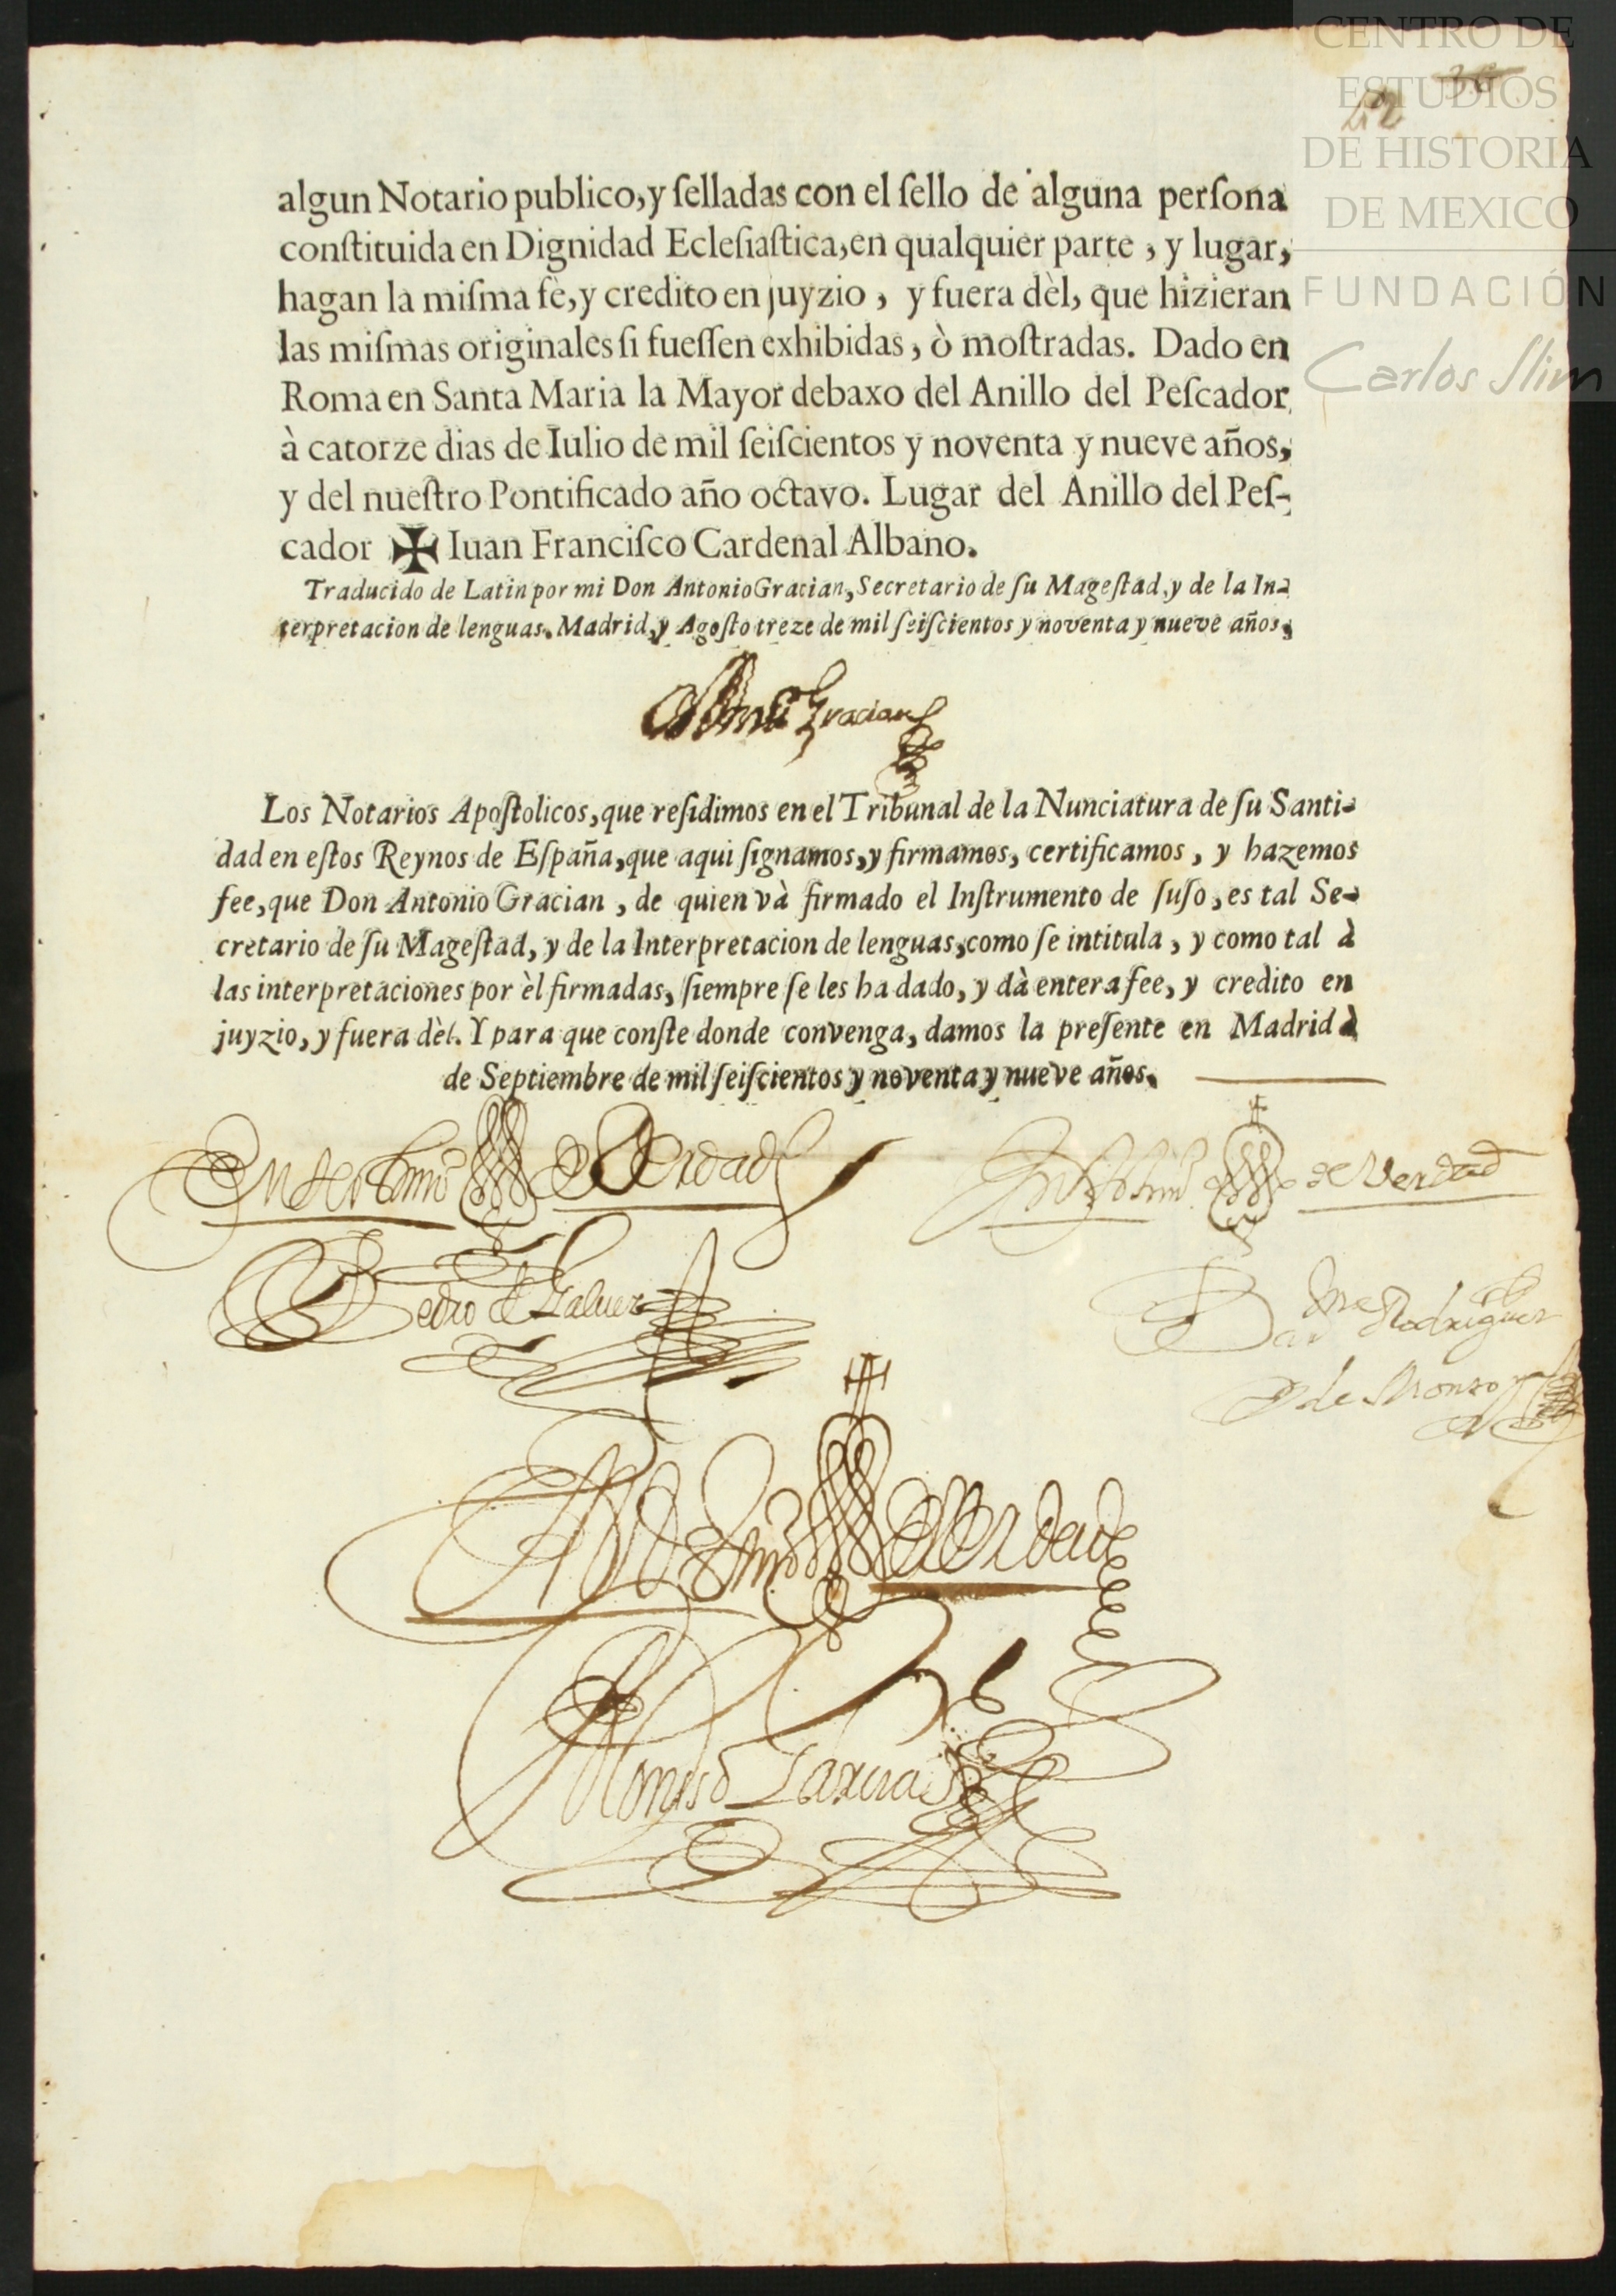 CENTRO DE
ESTUDIOS
DE HISTORIA
DE MEXICO
FUNDACIÓN
Carlos Slim
36
algun Notario publico, y ſelladas con el ſello de alguna perſona
conſtituida en Dignidad Ecleſiaſtica, en qualquier parte, y lugar,
hagan la miſma fè, y credito en juyzio, y fuera dèl, que hizieran
las miſmas originales ſi fueſſen exhibidas, ò moſtradas. Dado en
Roma en Santa Maria la Mayor debaxo del Anillo del Peſcador
à catorze dias de Iulio de mil ſeiſcientos y noventa y nueve años,
y del nueſtro Pontificado año octavo. Lugar del Anillo del Peſ-
cador ✠ Iuan Franciſco Cardenal Albano.
Traducido de Latin por mi Don Antonio Gracian, Secretario de ſu Mageſtad, y de la In-
terpretacion de lenguas. Madrid, y Agoſto treze de mil ſeiſcientos y noventa y nueve años,
Gracian
Los Notarios Apoſtolicos, que reſidimos en el Tribunal de la Nunciatura de ſu Santi-
dad en eſtos Reynos de Eſpaña, que aqui ſignamos, y firmamos, certificamos, y hazemos
fee, que Don Antonio Gracian, de quien và firmado el Inſtrumento de ſuſo, es tal Se-
cretario de ſu Mageſtad, y de la Interpretacion de lenguas, como ſe intitula, y como tal à
las interpretaciones por èl firmadas, ſiempre ſe les ha dado, y dà entera fee, y credito en
juyzio, y fuera dèl. Y para que conſte donde convenga, damos la preſente en Madrid à
de Septiembre de mil ſeiſcientos y noventa y nueve años.
En testimo de Verdad
de Verdad
Pedro de Galuez
Rodriguez
de Monroy
de Verdad
Alonso Garcia